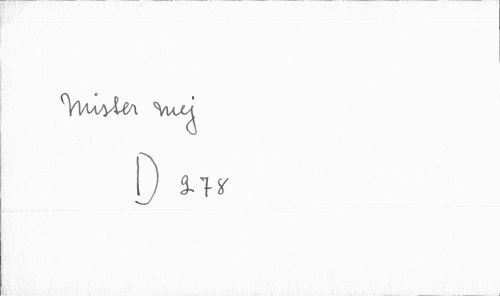 Mister mej
D 278